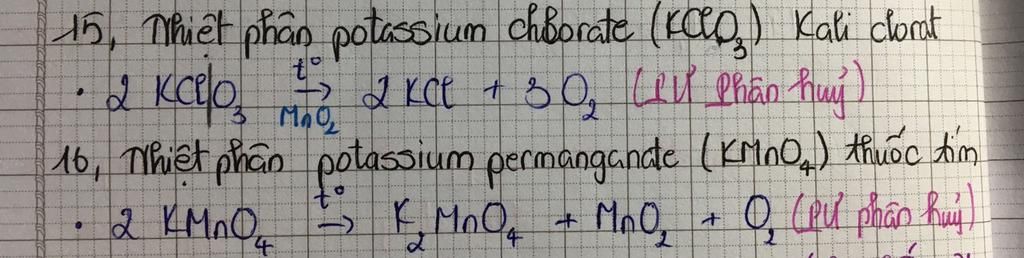 15, Nhiệt phân potassium chlorate (KClO₃) Kali clorat
• 2 KClO₃ t° → MnO₂ 2 KCl + 3 O₂ (PƯ phân huỷ)
16, Nhiệt phân potassium permanganate (KMnO₄) thuốc tím
• 2 KMnO₄ t° → K₂MnO₄ + MnO₂ + O₂ (PƯ phân huỷ)